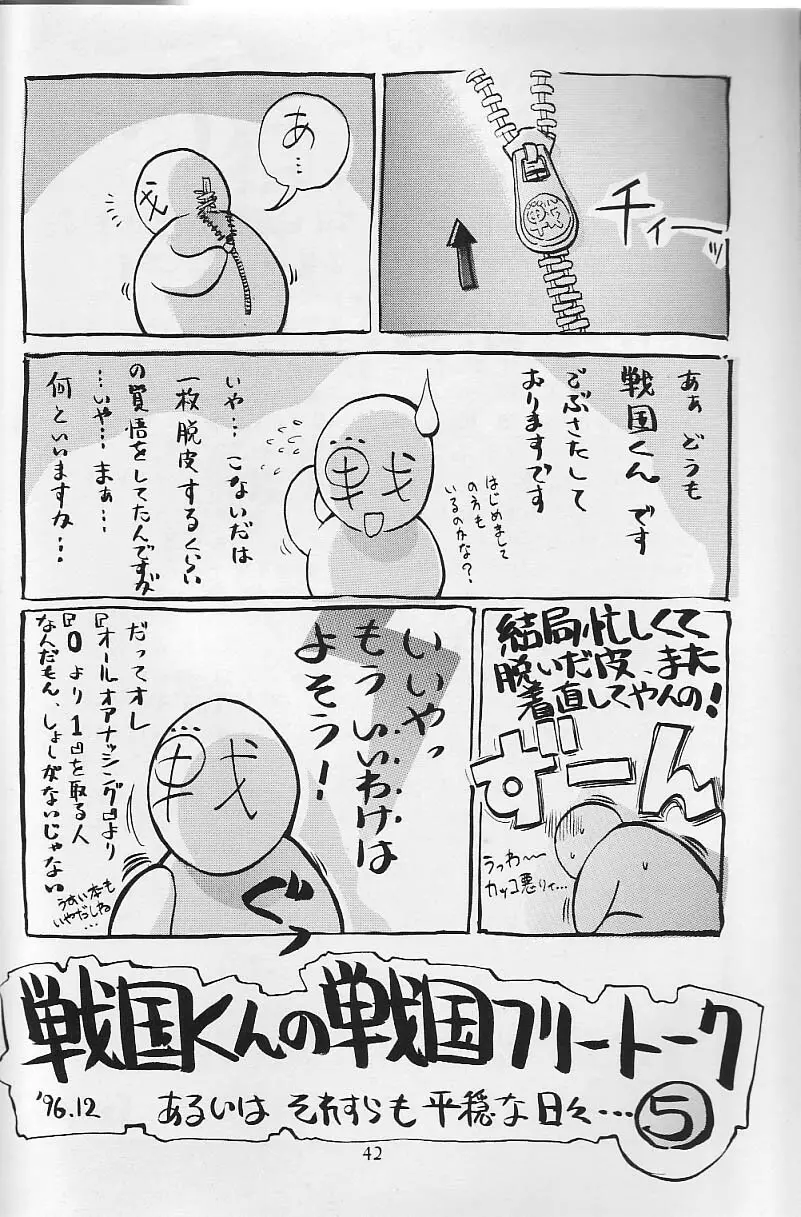 チィーッ
あ…
あぁ どうも
戦国くん です
ごぶさたして
おりますです
はじめまして
の方も
いるのかな？
戦
いや… こないだは
一枚脱皮するくらい
の覚悟をしてたんですが
…いや… まぁ…
何といいますか…
結局忙しくて
脱いだ皮、また
着直してやんの！
ずーん
うっわ〜
カッコ悪りィ…
いいやっ
もう いいわけは
よそう！
戦
ぐっ
だってオレ
『オールオアナッシング』より
『0より1』を取る人
なんだもん、しょーがないじゃない
うすい本も
いやだしね
…
戦国くんの戦国フリートーク
'96.12 あるいは それすらも 平穏な日々… ⑤
42